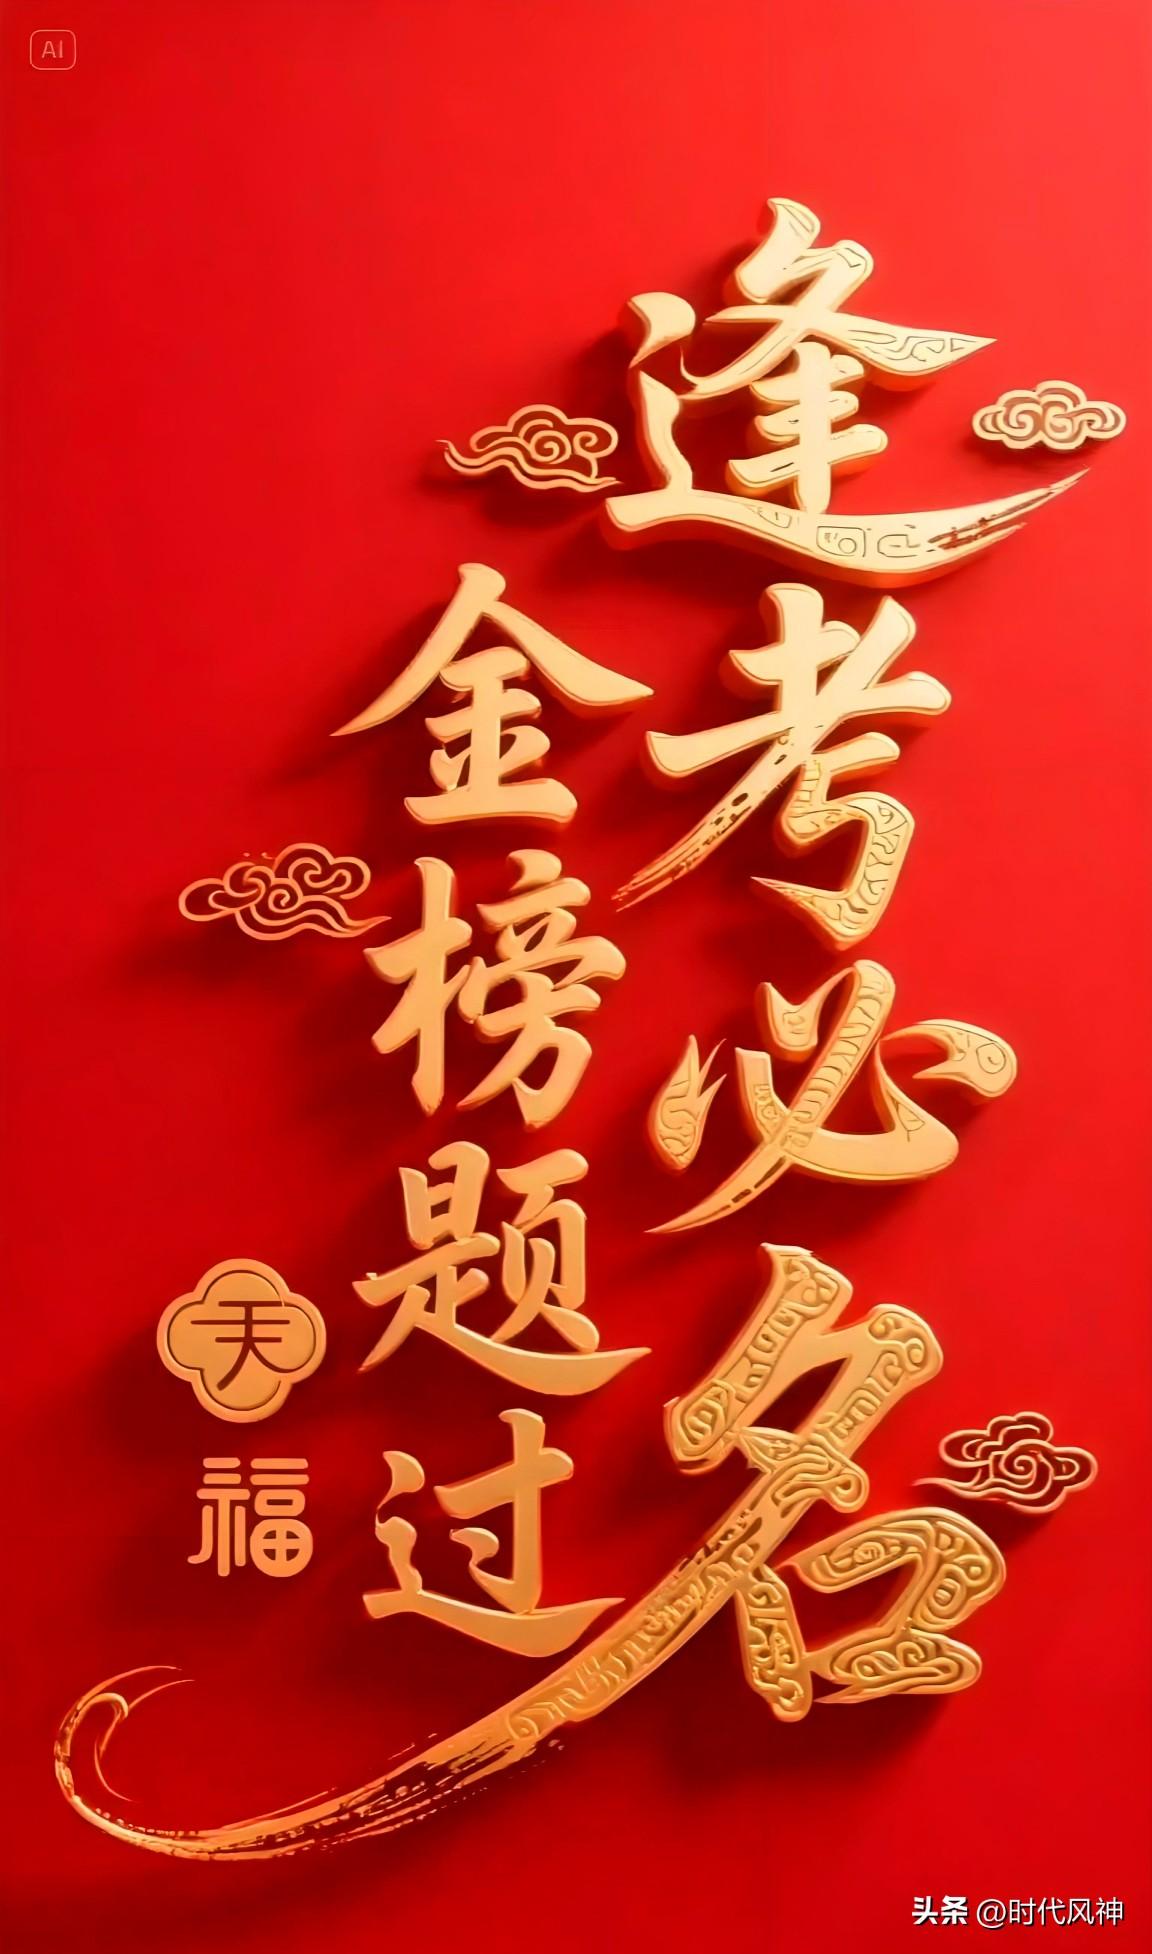 AI
逢考必名
金榜题过
福
头条 @时代风神